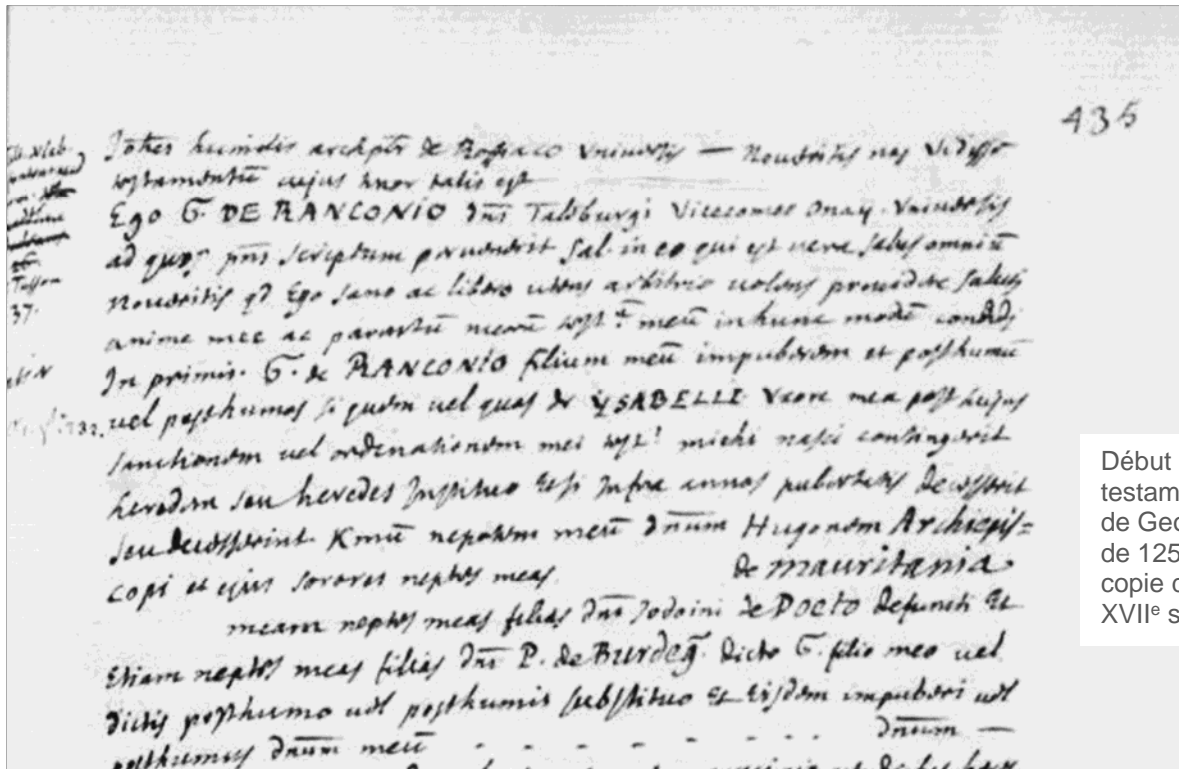 435
Johes humilis archptr de Roffiaco Vniuersis — Noueritis nos Vidisse
testamentū cujus tenor talis est
Ego G. DE RANCONIO dn̄s Talleburgi Vicecomes Onay. Vniuersis
ad quos pn̄s scriptum peruenerit Sal. in eo qui est uera salus omniū
Noueritis qd Ego sano ac libero utens arbitrio uolens prouidere saluti
anime mee ac parentū meorū test. meū in hunc modū condidi
In primis. G. de RANCONIO filium meū impuberem et posthumū
uel posthumos si quem uel quos de YSABELLE Vxore mea post hujus
sanctionem uel ordenationem mei test. michi nasci contingerit
heredem seu heredes Instituo Et si Infra annos pubertatis decesserit
seu decesserint. nepotem meū dn̄um Hugonem Archiepis=
copi et ejus sorores neptes meas de mauritania
meam neptes meas filias dn̄i Jodoini de DOETO defuncti Et
Etiam neptes meas filias dn̄i P. de Burdeg. dicto G. filio meo uel
dictis posthumo uel posthumis substituo Et Eisdem impuberi uel
posthumis dn̄um meū - - - - - - - - dn̄um —
37.
Début
testam
de Geo
de 125
copie d
XVIIe s